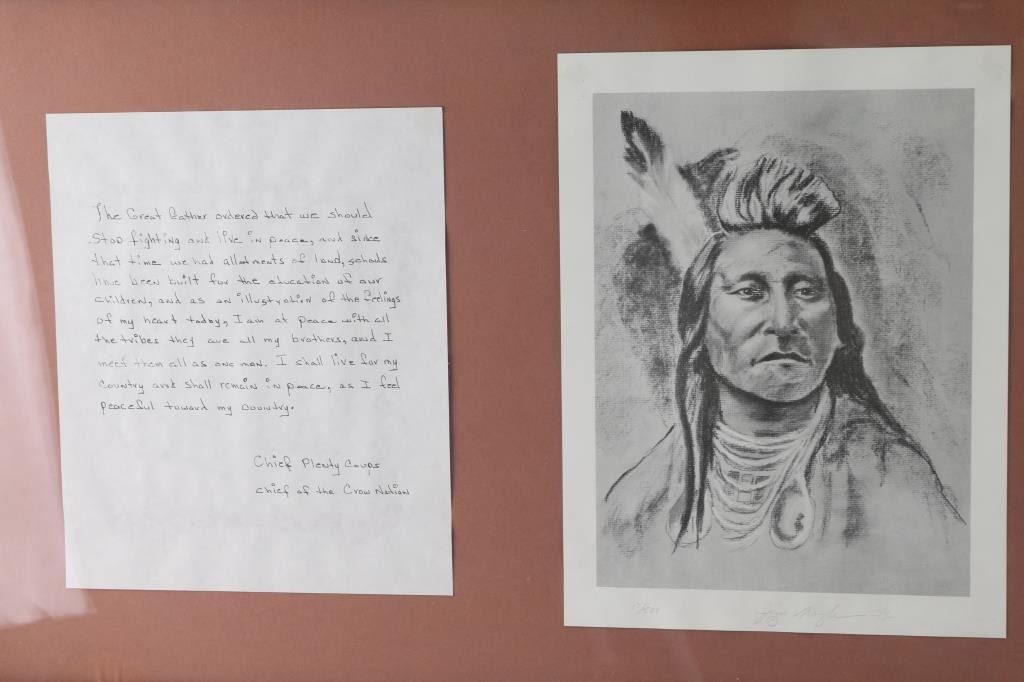 The Great Father ordered that we should
Stop fighting and live in peace, and since
that time we had allotments of land, schools
have been built for the education of our
children, and as an illustration of the feelings
of my heart today, I am at peace with all
the tribes they are all my brothers, and I
meet them all as one man. I shall live for my
Country and shall remain in peace, as I feel
peaceful toward my country.
Chief Plenty Coups
chief of the Crow Nation